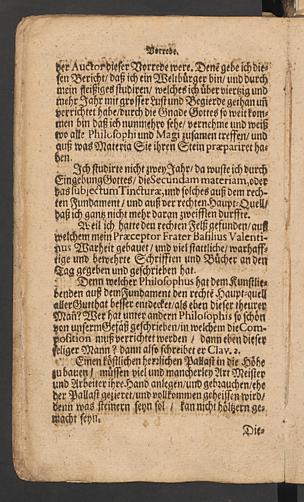 Vorrede.
der Auctor dieser Vorrede were. Denē gebe ich die-
sen Bericht/ daß ich ein Weltbürger bin/ und durch
mein fleißiges studiren/ welches ich über viertzig und
mehr Jahr mit grosser Lust und Begierde gethan uñ
verrichtet habe/ durch die Gnade Gottes so weit kom-
men bin daß ich nunmehro sehe/ vernehme und weiß
wo alle Philosophi und Magi zusamen treffen/ und
auß was Materia Sie ihren Stein præpariret ha-
ben.
Ich studirte nicht zwey Jahr/ da wuste ich durch
Eingebung Gottes/ die Secundam materiam, oder
das subjectum Tincturæ, und solches auß dem rech-
ten Fundament/ und auß der rechten Haupt-Quell/
daß ich gantz nicht mehr daran zweifflen durffte.
Weil ich hatte den rechten Felß gefunden/ auff
welchem mein Præceptor Frater Basilius Valenti-
nus Warheit gebauet/ und viel stattliche/ warhaff-
tige und bewehrte Schrifften und Bücher an den
Tag gegeben und geschrieben hat.
Denn welcher Philosophus hat dem Kunstlie-
benden auß dem Fundament den rechte Haupt-quell
aller Gutthat besser entdecket/ als eben dieser theurer
Mañ? Wer hat unter andern Philosophis so schön
von unserm Gefäß geschrieben/ in welchem die Com-
position muß verrichtet werden/ dann eben dieser
seliger Mann? dann also schreibet er Clav. 2.
Einen köstlichen herrlichen Pallast in die Höhe
zu bauen/ müssen viel und mancherley Art Meister
und Arbeiter ihre Hand anlegen/ und gebrauchen/ ehe
der Pallast gezieret/ und vollkommen geheissen wird/
denn was steinern seyn sol/ kan nicht höltzern ge-
macht seyn.
Die-